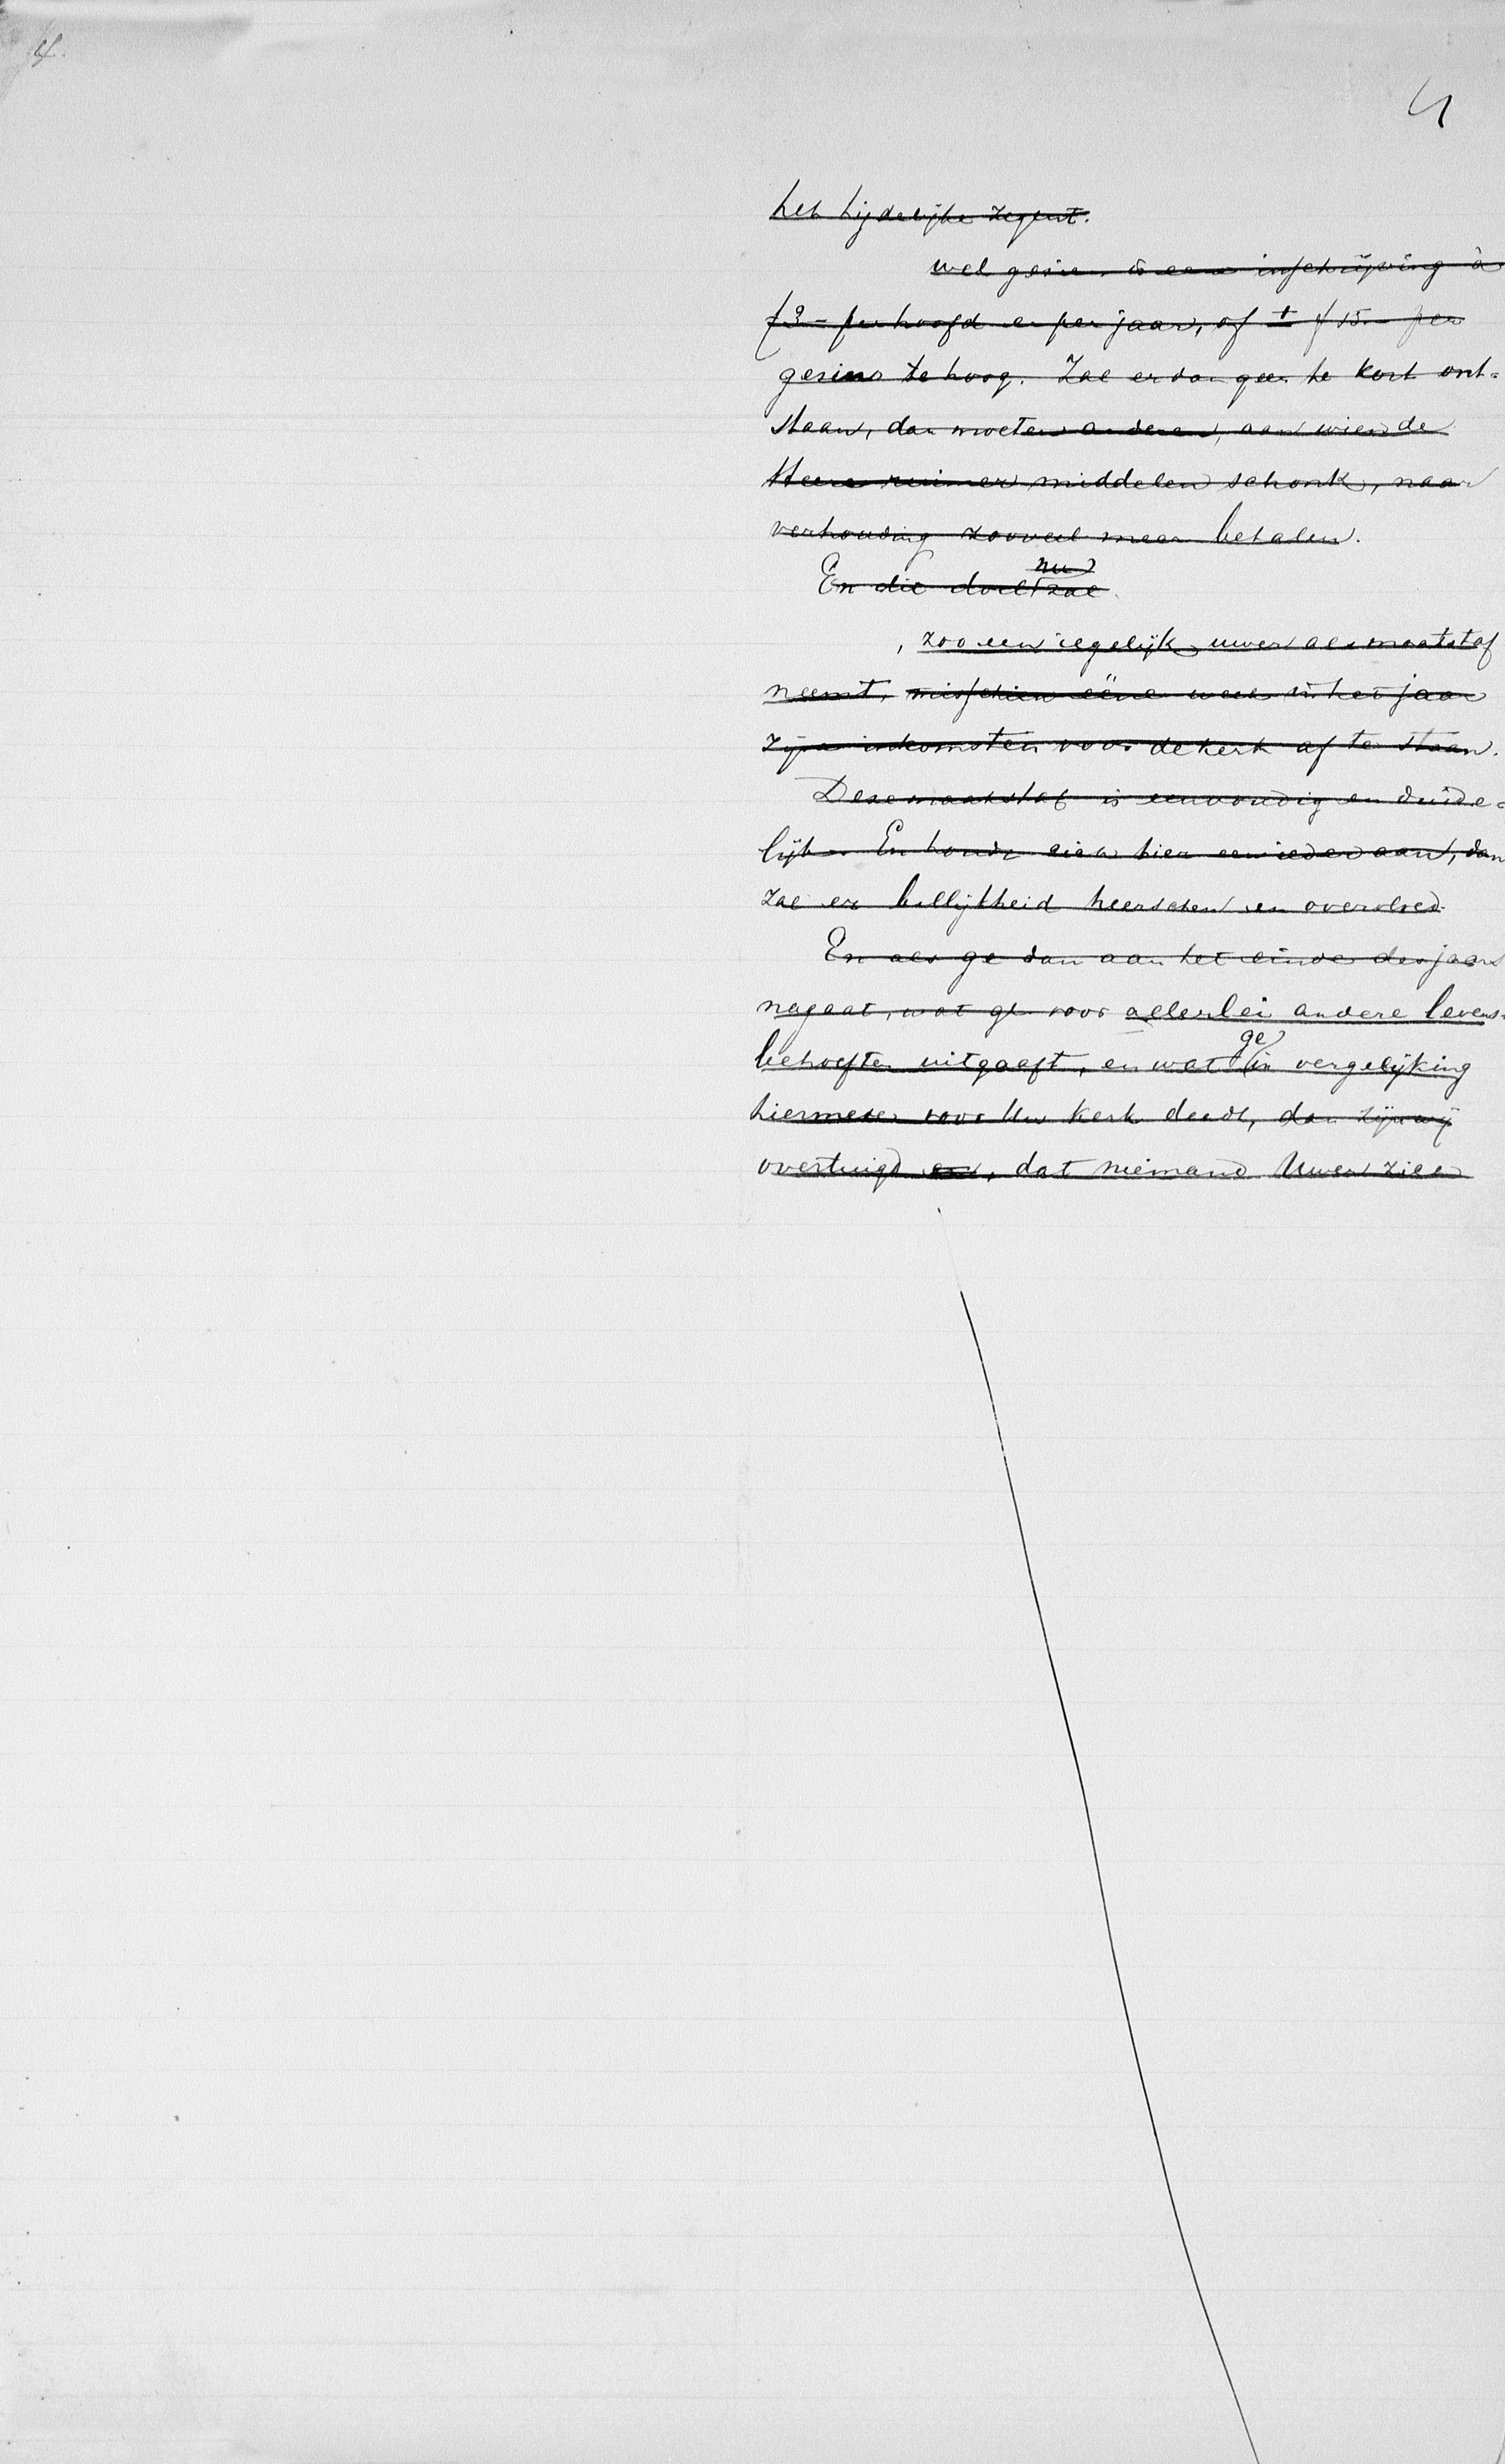 4.
4
het tijdelijke zegent.
wel gezin is een inschrijving à
f3 - per hoofd en per jaar, of ± f 15.- per
gezin te hoog. Zal er dan geen te kort ont-
staan, dan moeten anderen, aan wien de
Heere ruimer middelen schonk, naar
verhouding zooveel meer betalen.
nu
En die doel zal
, zoo een iegelijk uwer als maatstaf
neemt, misschien ééne week in het jaar
zijne inkomsten voor de kerk af te staan.
Deze maatstaf is eenvoudig en duide-
lijk. En houdt zich hier een ieder aan, dan
zal er billijkheid heerschen en overvloed.
En als ge dan aan het einde des jaars
nagaat, wat ge voor allerlei andere levens-
ge
behoeften uitgaaft, en wat in vergelijking
hiermede voor Uw kerk deedt, dan zijn wij
overtuigd en, dat niemand Uwer zich